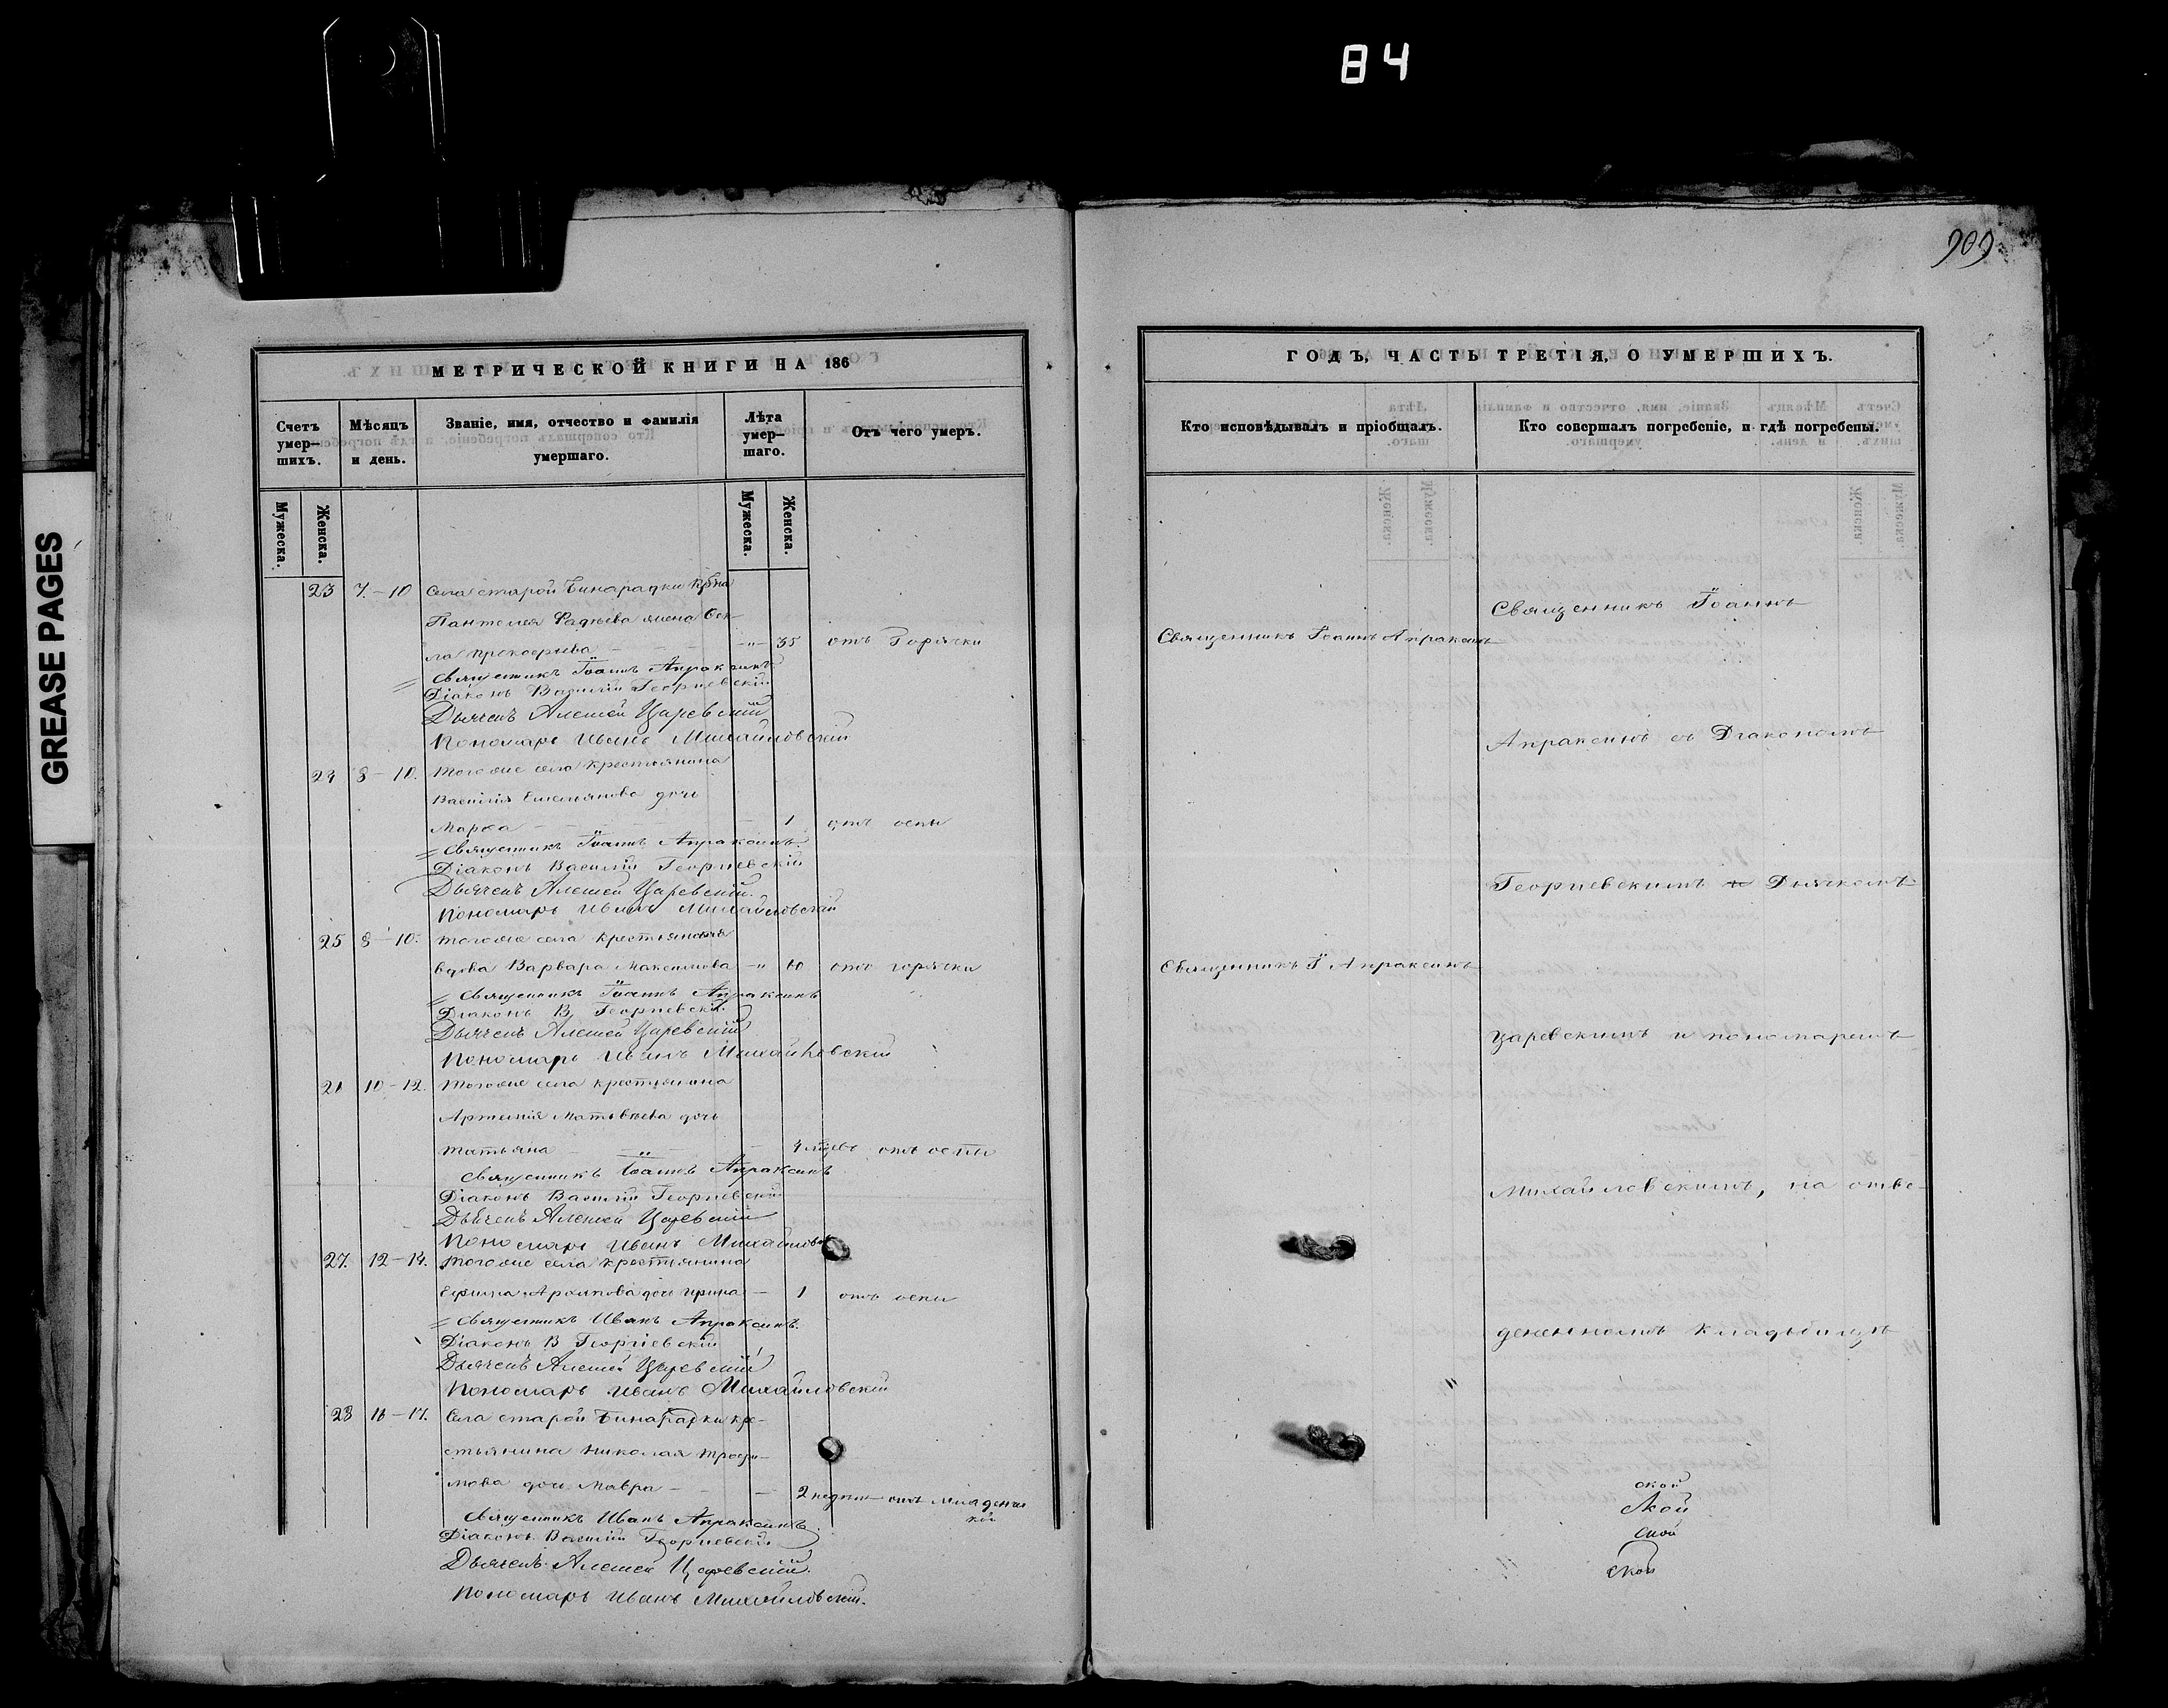 84
GREASE PAGES
909
МЕТРИЧЕСКОЙ КНИГИ НА 186
Счетъ умер-шихъ.
Мѣсяцъ и день.
Званіе, имя, отчество и фамилія умершаго.
Лѣта умер-шаго.
Отъ чего умеръ.
Мужеска.
Женска.
Мужеска.
Женска.
23 7 – 10 Села старой Бинарадки
Пантелея Фадѣева жена Фек-
ла Прокофьева 35 отъ Горячки
Священникъ Іоаннъ Апраксинъ
Діаконъ Василій Георгіевскій
Дьячекъ Алексей Царевскій
Пономарь Иванъ Михайловскій
24 8 – 10. Тогоже села крестьянина
Василія Емельянова дочь
Марѳа 1 отъ оспы
Священникъ Іоаннъ Апраксинъ.
Діаконъ Василій Георгіевскій
Дьячекъ Алексей Царевскій.
Пономарь Иванъ Михайловскій
25 8 – 10. Тогоже села крестьянская
вдова Варвара Максимова 60 отъ горячки
Священникъ Іоаннъ Апраксинъ
Діаконъ В. Георгіевскій
Дьячекъ Алексей Царевскій
Пономарь Иванъ Михайловскій
26 10 – 12. Тогоже села крестьянина
Артемія Матвѣева дочь
Татьяна 4 отъ оспы
Священникъ Іоаннъ Апраксинъ
Діаконъ Василій Георгіевскій
Дьячекъ Алексей Царевскій
Пономарь Иванъ
27. 12 – 14. Тогоже села крестьянина
Ефима Архипова дочь Ирина 1 отъ оспы
Священникъ Иванъ Апраксинъ.
Діаконъ В Георгіевскій
Дьячекъ Алексей Царевскій
Пономарь Иванъ Михайловскій
28 16 – 17. Села старой Бинарадки кре-
стьянина Николая Трофи-
мова дочь Мавра 2 недѣли отъ младенчес
кой
Священникъ Иванъ Апраксинъ.
Діаконъ Василій Георгіевскій
Дьячекъ Алексей Царевскій.
Пономарь Иванъ Михайловскій.
ГОДЪ, ЧАСТЬ ТРЕТІЯ, О УМЕРШИХЪ.
Кто исповѣдывалъ и пріобщалъ.
Кто совершалъ погребеніе, и гдѣ погребены.
Священникъ Іоаннъ
Священникъ Іоаннъ Апраксинъ
Апраксинъ съ Діакономъ
Георгіевскимъ и Дьячкомъ
Священникъ І Апраксинъ
Царевскимъ и пономаремъ
Михайловскимъ, на отве-
денномъ кладьбищѣ
ской
ской
ской
ской